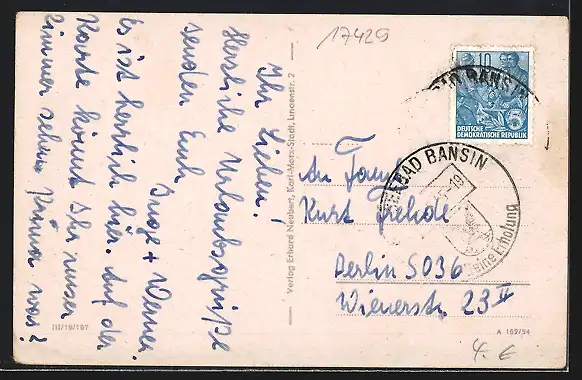 17429
Ihr Lieben!
Herzliche Urlaubsgrüße
senden Euch
Inge + Werner.
Es ist herrlich hier. Auf der
Karte könnt Ihr unser
Zimmer sehen. Prima was?
Verlag Erhard Neubert, Karl-Marx-Stadt, Lindenstr. 2
10
DEUTSCHE
DEMOKRATISCHE REPUBLIK
BANSIN
SEEBAD BANSIN
Deine Erholung
An Fam.
Kurt
Berlin SO36
Wienerstr. 23 II
III/18/197
A 162/54
4.€